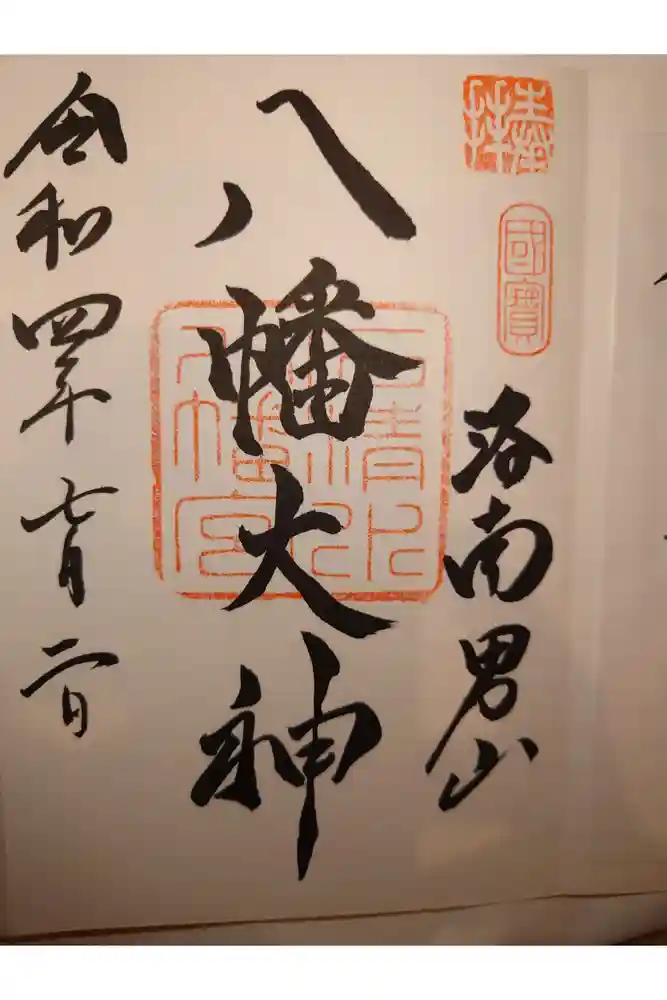 奉拝
國寳
洛南男山
八幡大神
石清水八幡宮
令和四年七月二日